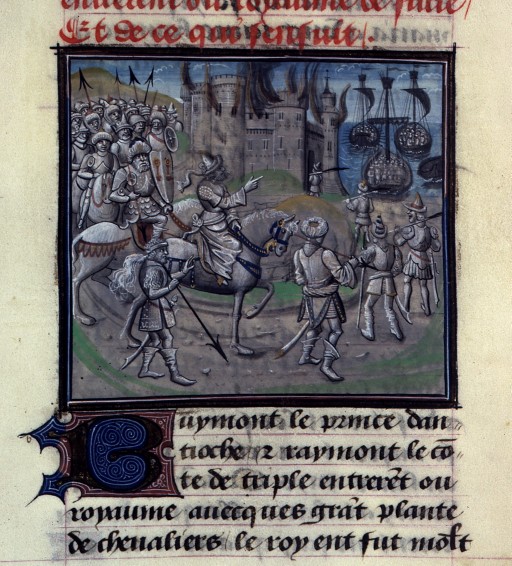 entrerent ou royaume de surie
Et de ce qui sensuit
Buymont le prince dan
tioche ⁊ raymont le cō
te de triple entrerēt ou
royaume auecques grāt plante
de cheualiers / le roy ent fut mōlt